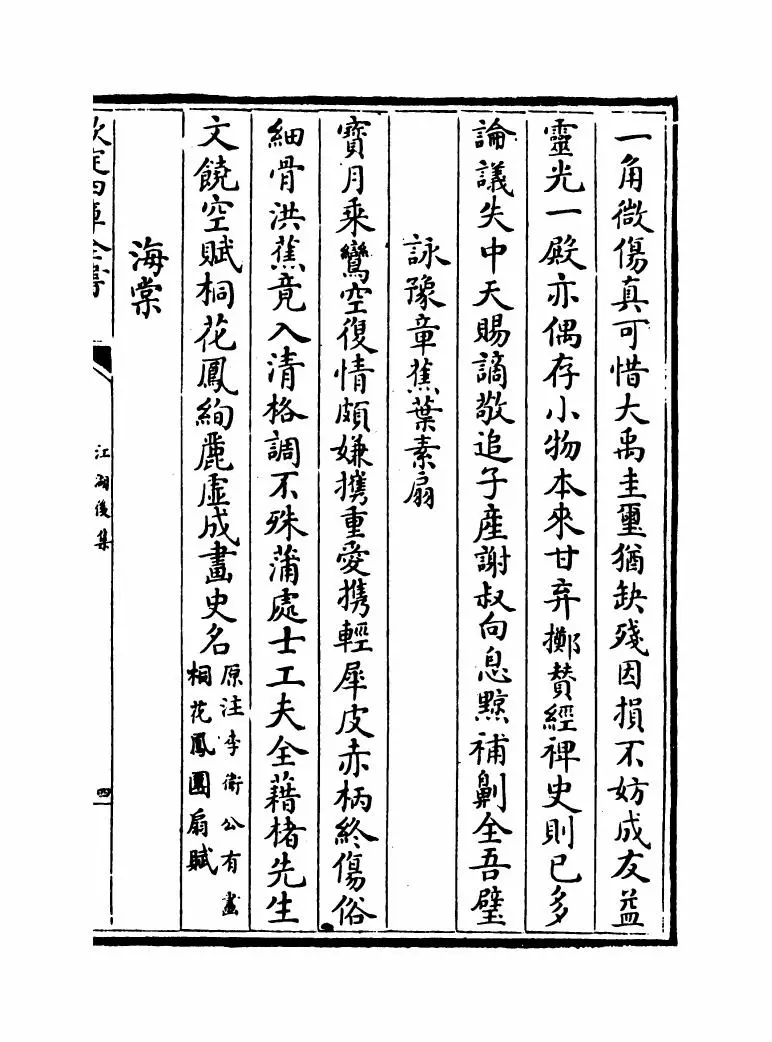 一角微傷真可惜大禹圭璽猶缺殘因損不妨成友益
靈光一殿亦偶存小物本來甘弃擲賛經裨史則已多
論議失中天賜謫敬追子產謝叔向息黥補劓全吾璧
詠豫章蕉葉素扇
寳月乘鸞空復情頗嫌擕重愛携輕犀皮赤柄終傷俗
細骨洪蕉竟入清格調不殊蒲處士工夫全藉楮先生
文饒空賦桐花鳳絢麗虛成畫史名原注李衛公有畫
桐花鳳團扇賦
海棠
欽定四庫全書
江湖後集
四